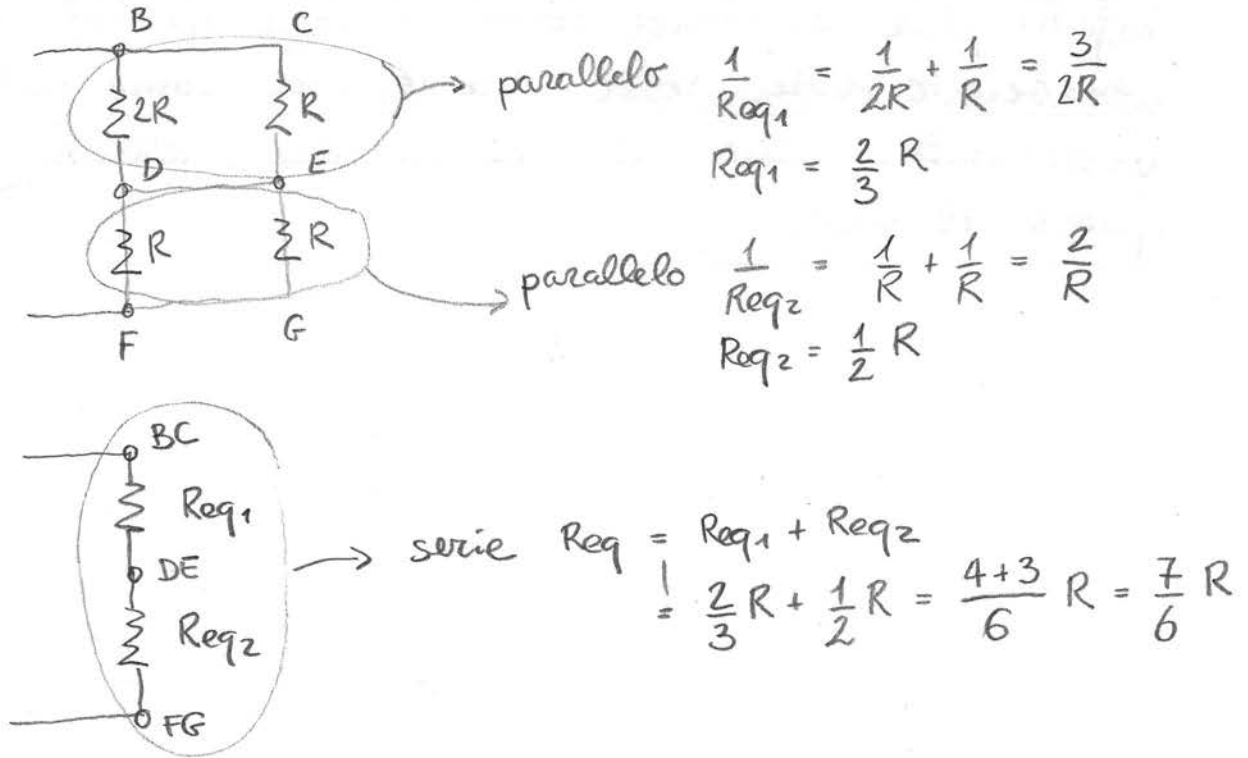 B C
2R R
parallelo 1/Req1 = 1/2R + 1/R = 3/2R
Req1 = 2/3 R
D E
R R
parallelo 1/Req2 = 1/R + 1/R = 2/R
Req2 = 1/2 R
F G
BC
Req1
DE
Req2
FG
serie Req = Req1 + Req2
= 2/3 R + 1/2 R = 4+3/6 R = 7/6 R